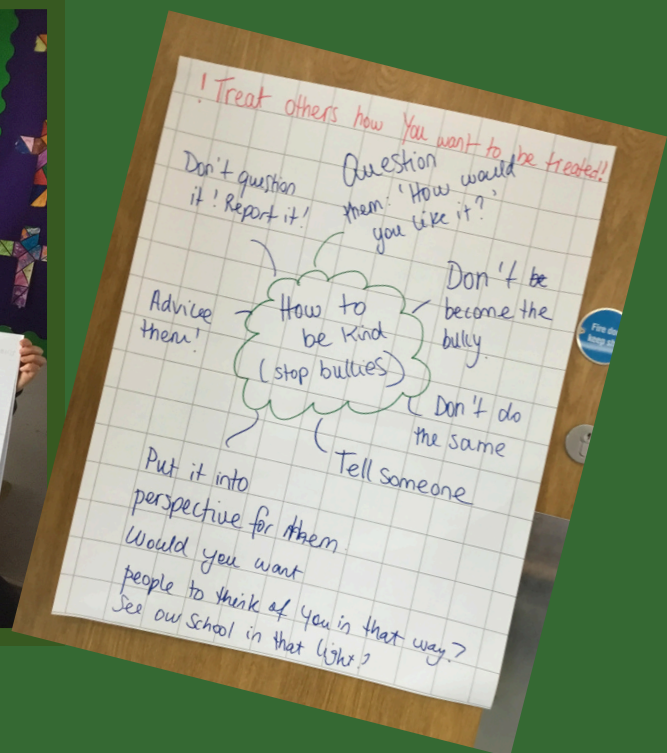 ! Treat others how You want to be treated!
Don't question
it! Report it!
Question
them: 'How would
you like it?'
Don't be
become the
bully.
Advice
them!
How to
be Kind
(stop bullies)
Don't do
the same
Tell someone
Put it into
perspective for them
Would you want
people to think of you in that way?
See our school in that light?
Fire do
keep sh